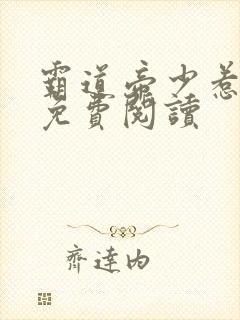 霸道帝少惹
免費閱讀
齊達內